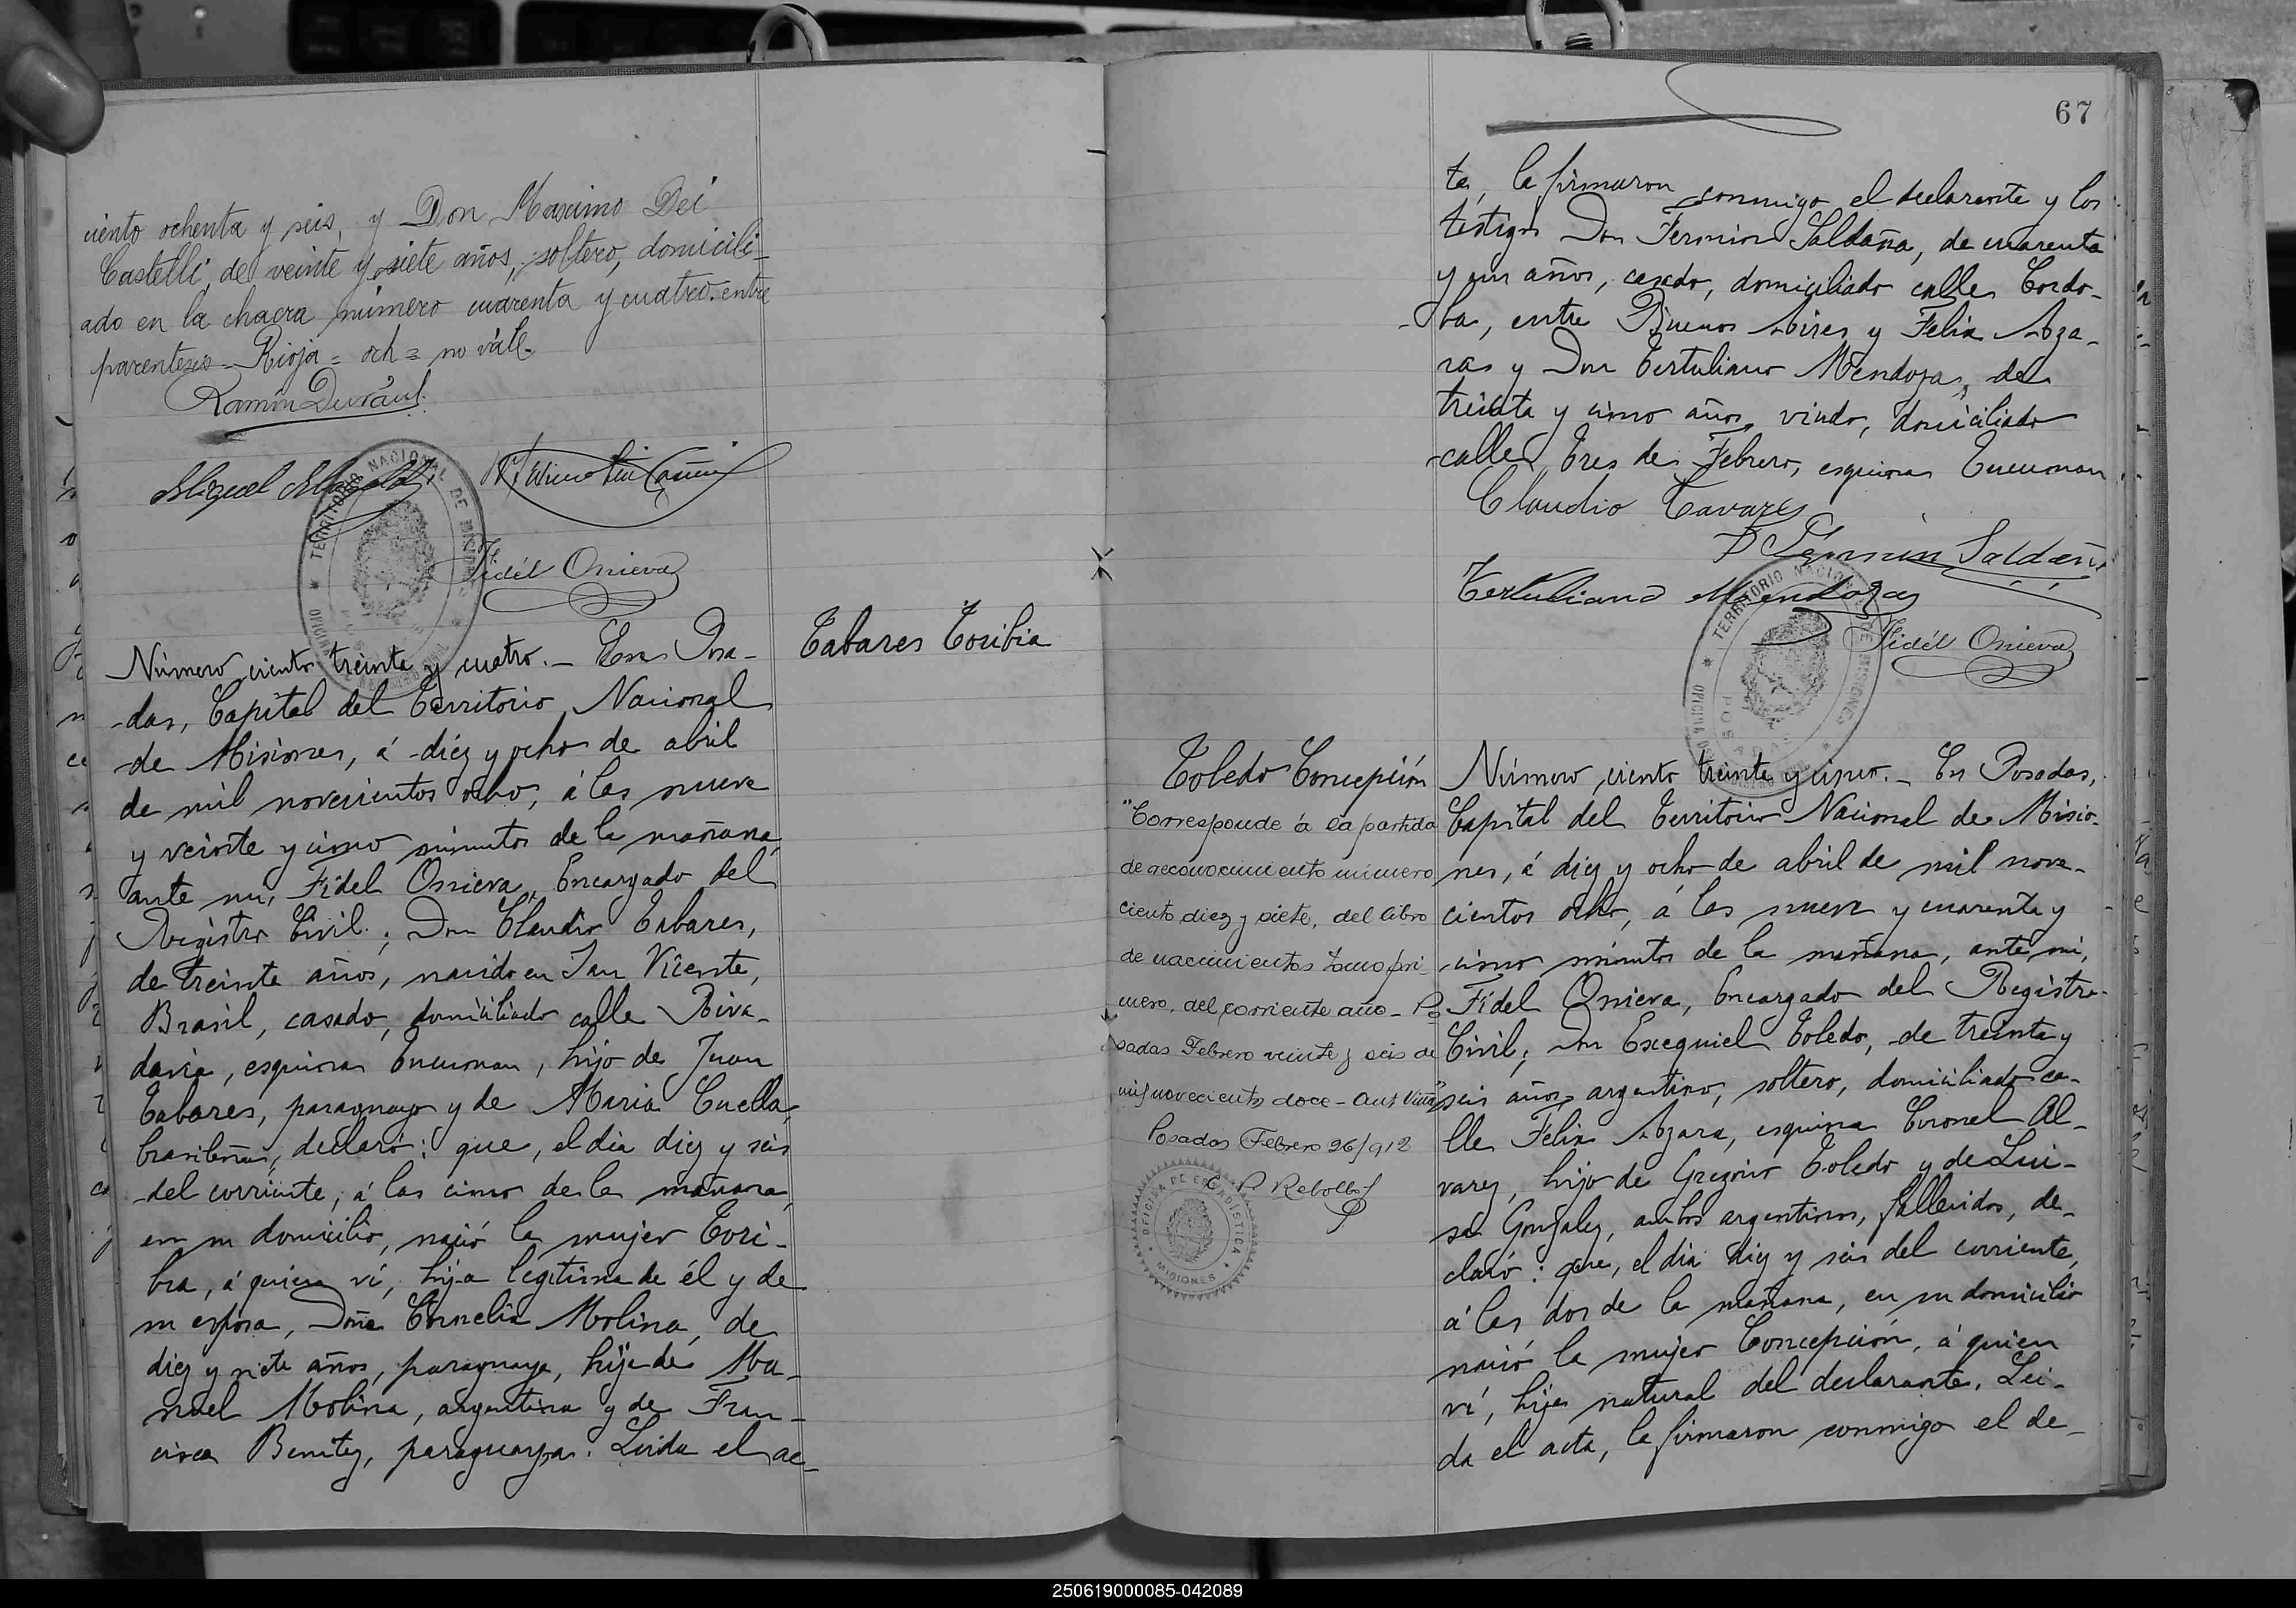 ciento ochenta y seis, y Don Maximo Dei
Castelli, de veinte y siete años, soltero, domicili-
ado en la chacra número cuarenta y cuatro. entre
parentesis - Rioja = och = no vale.
Ramón Durául
Miguel
Fidél Onieva
TERRITORIO NACIONAL DE MISIONES
Número ciento treinta y cuatro. — En Posa-
-das, Capital del Territorio Nacional
de Misiones, á diez y ocho de abril
de mil novecientos ocho, á las nueve
y veinte y cinco minutos de la mañana,
ante mi, Fidel Onieva, Encargado del
Registro Civil; Don Claudio Tabares,
de treinta años, nacido en San Vicente,
Brasil, casado, domiciliado calle Riva-
davia, esquina Tucuman, hijo de Juan
Tabares, paraguayo y de Maria Cuella,
brasileña, declaró: que, el dia diez y seis
del corriente, á las cinco de la mañana,
en su domicilio, nació la mujer Tori-
bia, á quien ví, hija legitima de él y de
su esposa, Doña Cornelia Molina, de
diez y siete años, paraguaya, hija de Ma-
nuel Molina, argentino y de Fran-
cisca Benitez, paraguaya. Leida el ac-
Tabares Toribia
67
ta, la firmaron conmigo el declarante y los
testigos Don Fermin Saldaña, de cuarenta
y un años, casado, domiciliado calle Cordo-
-ba, entre Buenos Aires y Felix Aza-
ra y Don Tertuliano Mendoza, de
treinta y cinco años, viudo, domiciliado
calle Tres de Febrero, esquina Tucuman
Claudio Tavares
Fermin Saldaña
Tertuliano Mendoza
Fidél Onieva
TERRITORIO NACIONAL DE MISIONES
POSADAS
Toledo Concepción
"Corresponde á la partida
de reconocimiento número
ciento diez y siete, del libro
de nacimientos tomo pri-
mero, del corriente año - Po
sadas Febrero veinte y seis de
mil novecientos doce -
Posadas Febrero 26/912
C P Rebollo
OFICINA DE ESTADÍSTICA
MISIONES
Número ciento treinta y cinco. — En Posadas,
Capital del Territorio Nacional de Misio-
nes, á diez y ocho de abril de mil nove-
cientos ocho, á las nueve y cuarenta y
cinco minutos de la mañana, ante mi,
Fidel Onieva, Encargado del Registro
Civil; Don Exequiel Toledo, de treinta y
seis años, argentino, soltero, domiciliado ca-
lle Felix Azara, esquina Coronel Al-
varez, hijo de Gregorio Toledo y de Lui-
sa Gonzalez, ambos argentinos, fallecidos, de-
claró: que, el dia diez y seis del corriente,
á las dos de la mañana, en su domicilio
nació la mujer Concepción, á quien
ví, hija natural del declarante. Lei-
da el acta, la firmaron conmigo el de-
250619000085-042089